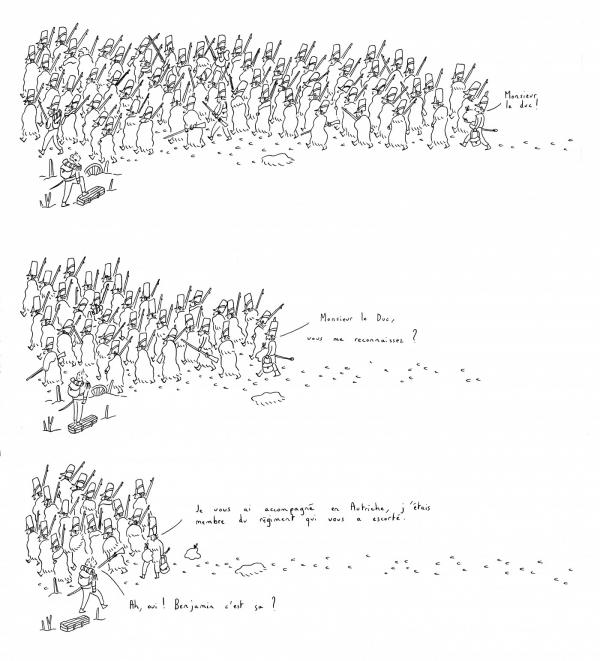 Monsieur
le duc !
Monsieur le Duc,
vous me reconnaissez ?
Je vous ai accompagné en Autriche, j'étais
membre du régiment qui vous a escorté.
Ah, oui ! Benjamin c'est ça ?